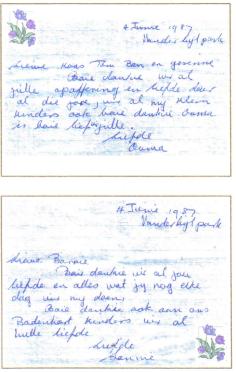 4 Junie 1987
Vanderbylpark
Liewe Klaas Ben en gesinne
Baie dankie vir al
julle opoffering en liefde deur
al die jare, vir al my klein
kinders ook baie dankie Ouma
is baie lief vir julle.
Liefde
Ouma
4 Junie 1987
Vanderbylpark
Liewe
Baie dankie vir al jou
liefde en alles wat jy nog elke
dag vir my doen.
Baie dankie ook aan ons
Badenhorst kinders vir al
hulle liefde
Liefde